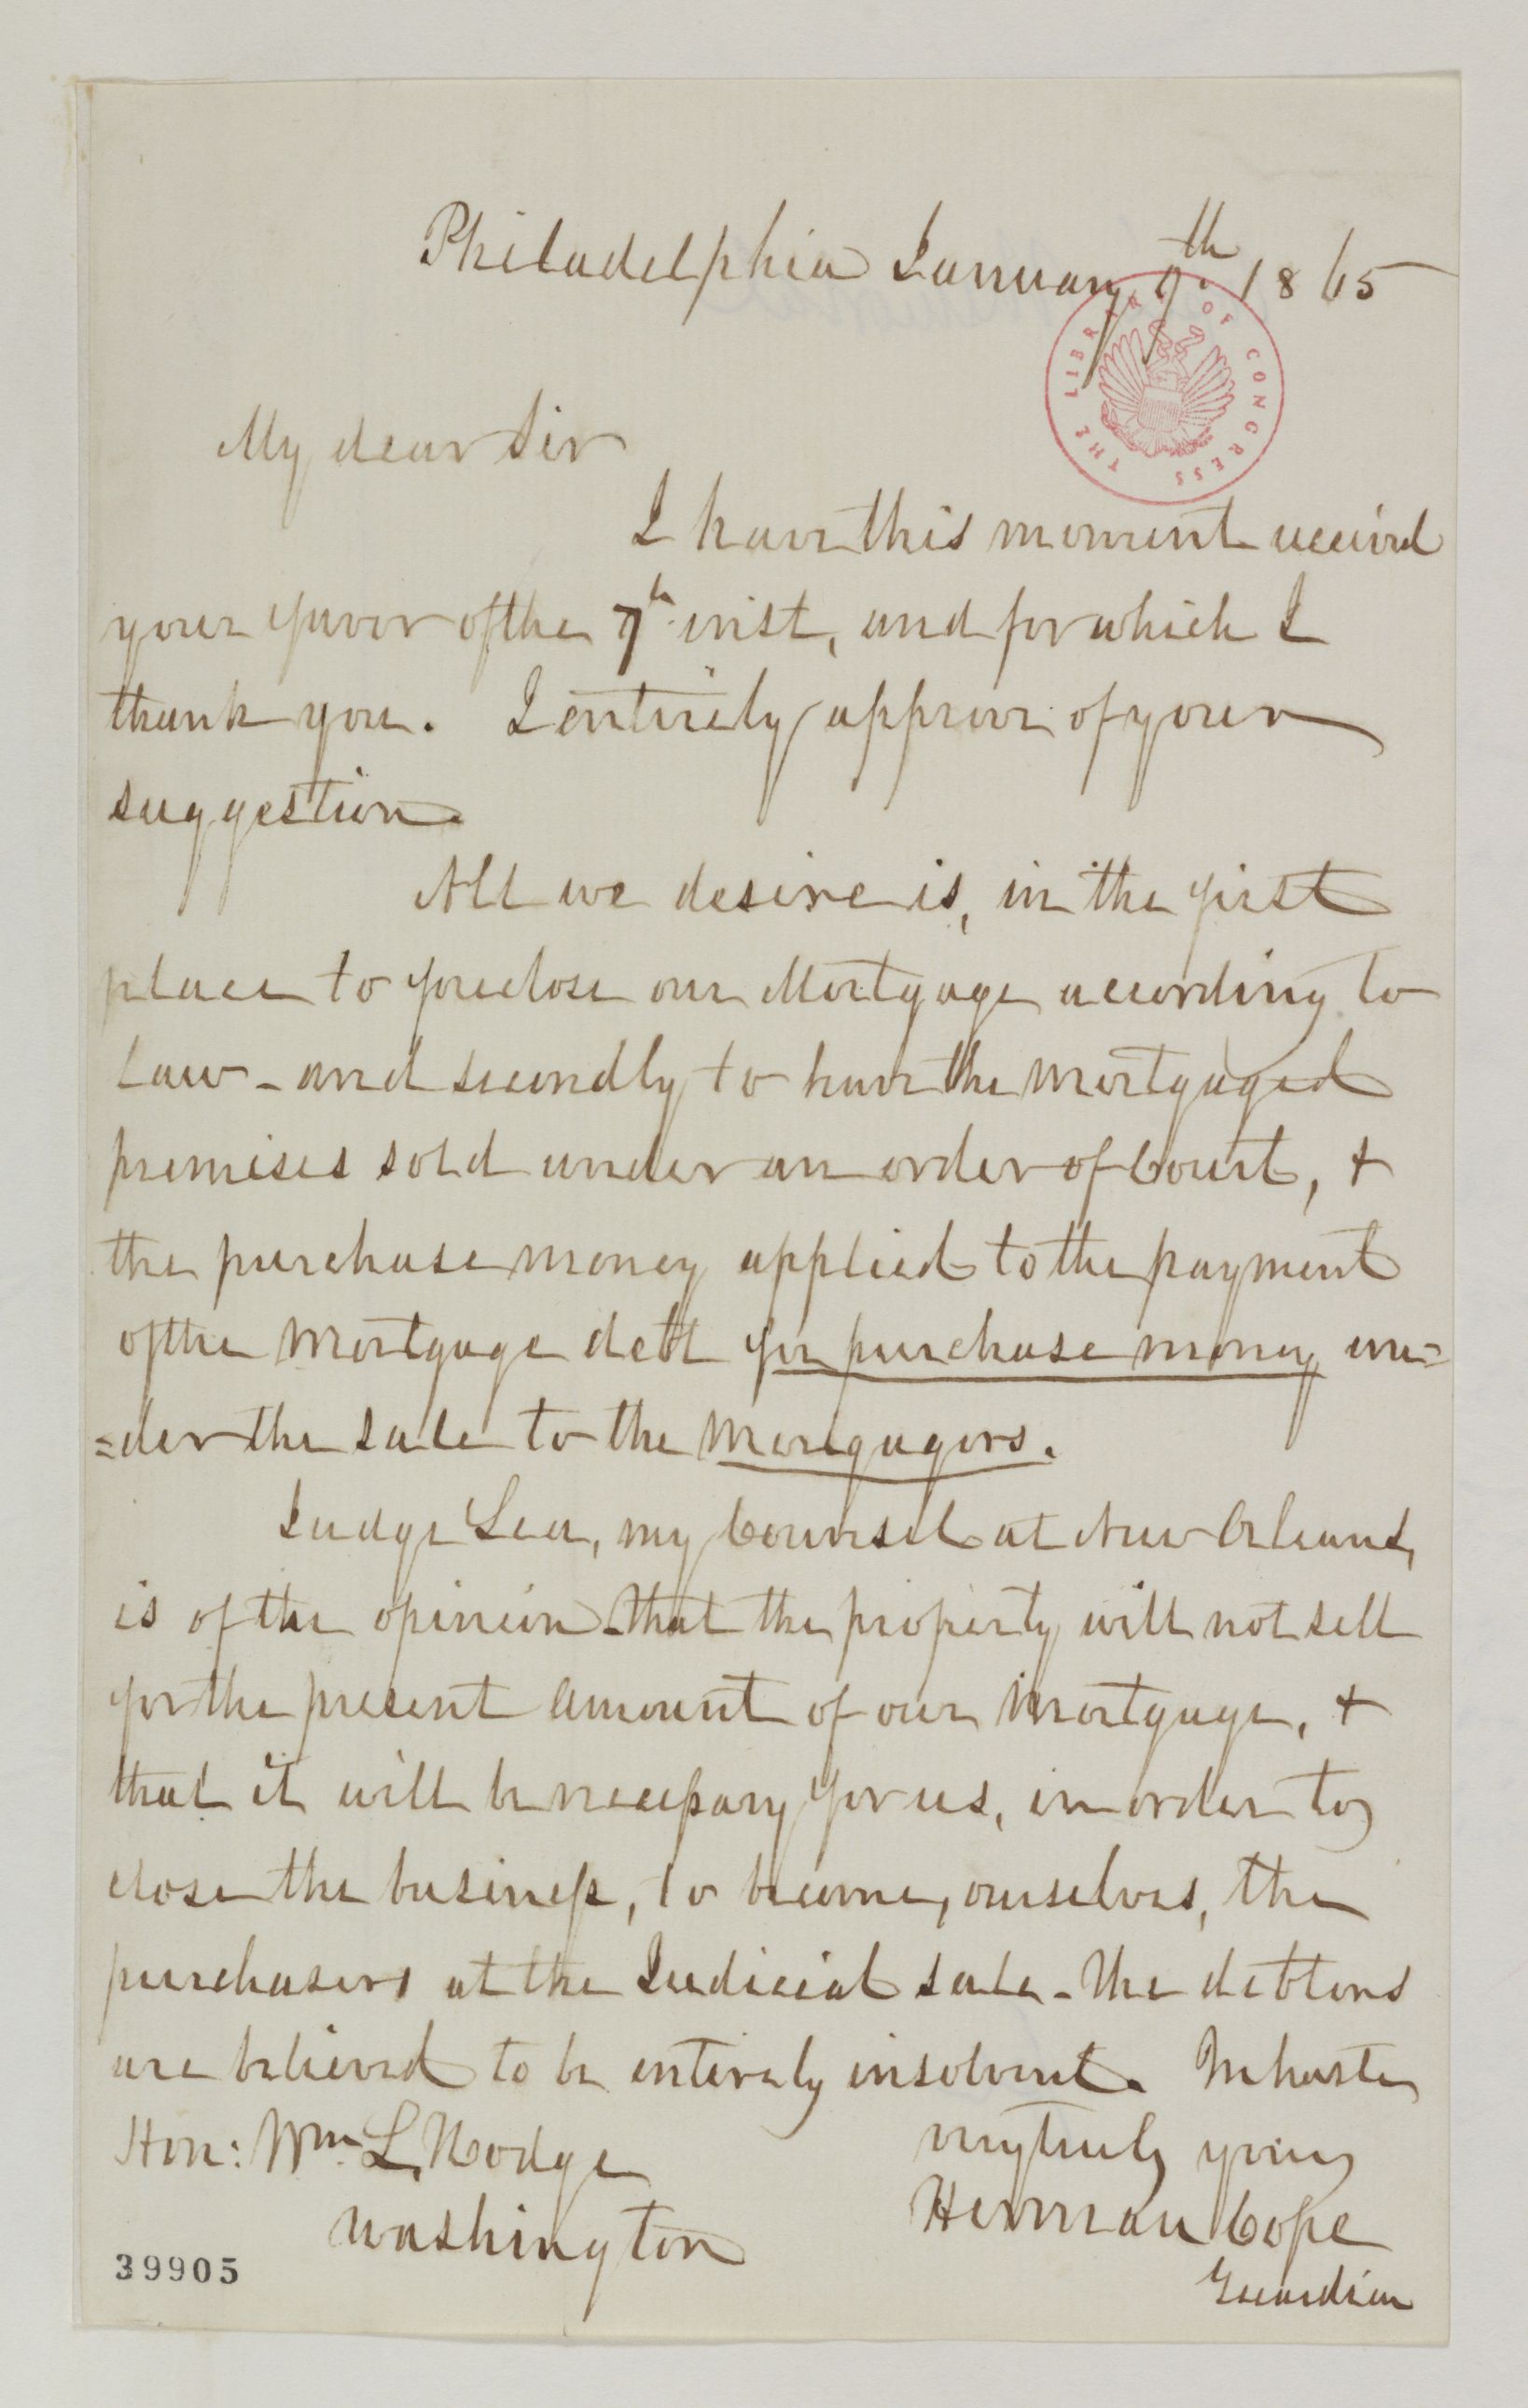 Philadelphia January 9th. 1865
THE LIBRARY OF CONGRESS
My dear Sir
I have this moment received
your favor of the 7th inst, and for which I
thank you. I entirely approve of your
suggestion.
All we desire is, in the first
place to foreclose our Mortgage according to
Law - and secondly to have the mortgaged
premises sold under an order of Court, +
the purchase money applied to the payment
of the Mortgage debt for purchase money un=
=der the sale to the Morgagors.
Judge Lea, my Counsel at New Orleans,
is of the opinion - that the property will not sell
for the present amount of our Mortgage, +
that it will be necessary for us, in order to
close the business, to become, ourselves, the
purchasers at the Judicial sale - The debtors
are believed to be entirely insolvent. In haste
very truly yours
Hon: Wm. L. Hodge
Herman Cope
Washington
Guardian
39905